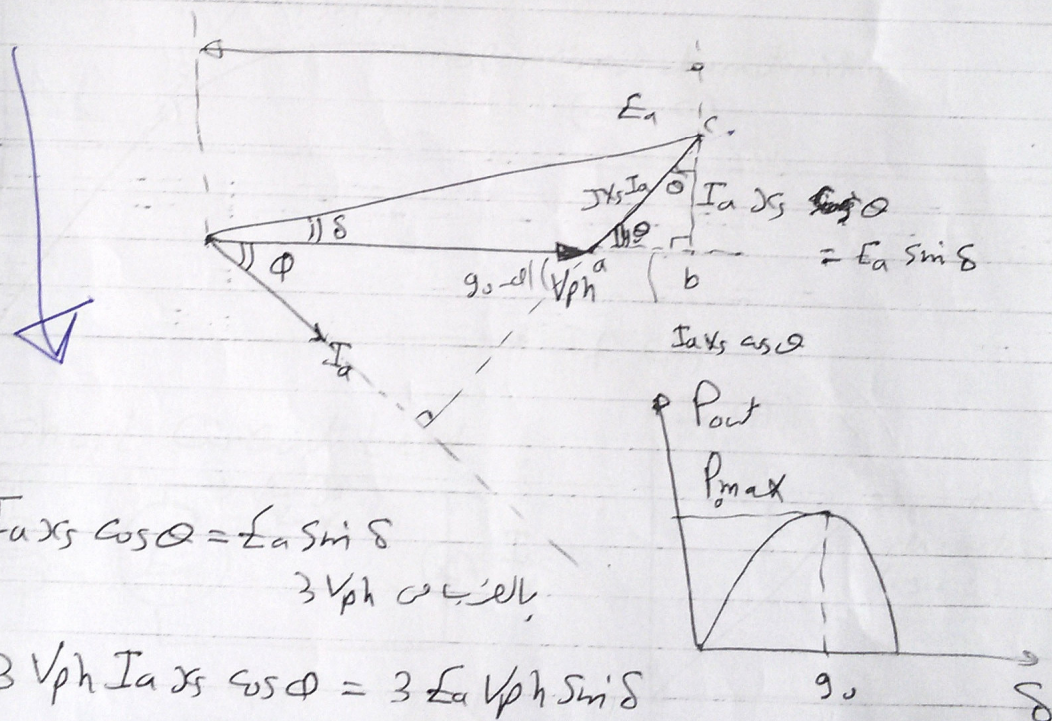 Ea
c.
δ
jXsIa
θ
Ia Xs θ
θ
= Ea Sin δ
Φ
Vph
a
b
Ia
Ia Xs cos θ
Pout
Pmax
Ia Xs Cos θ = Ea Sin δ
بالضرب في 3 Vph
3 Vph Ia Xs Cos Φ = 3 Ea Vph Sin δ
90
δ